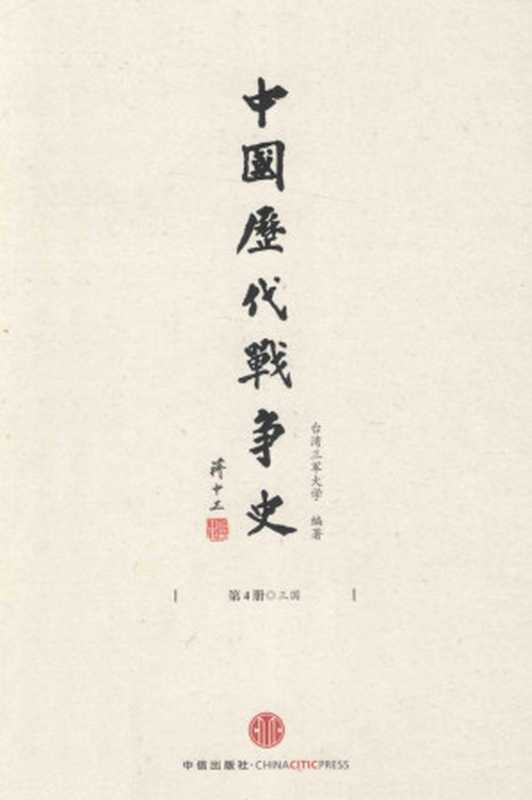 中國歷代戰争史
台湾三军大学 编著
蒋中正
第4册◎三国
中信出版社·CHINACITICPRESS